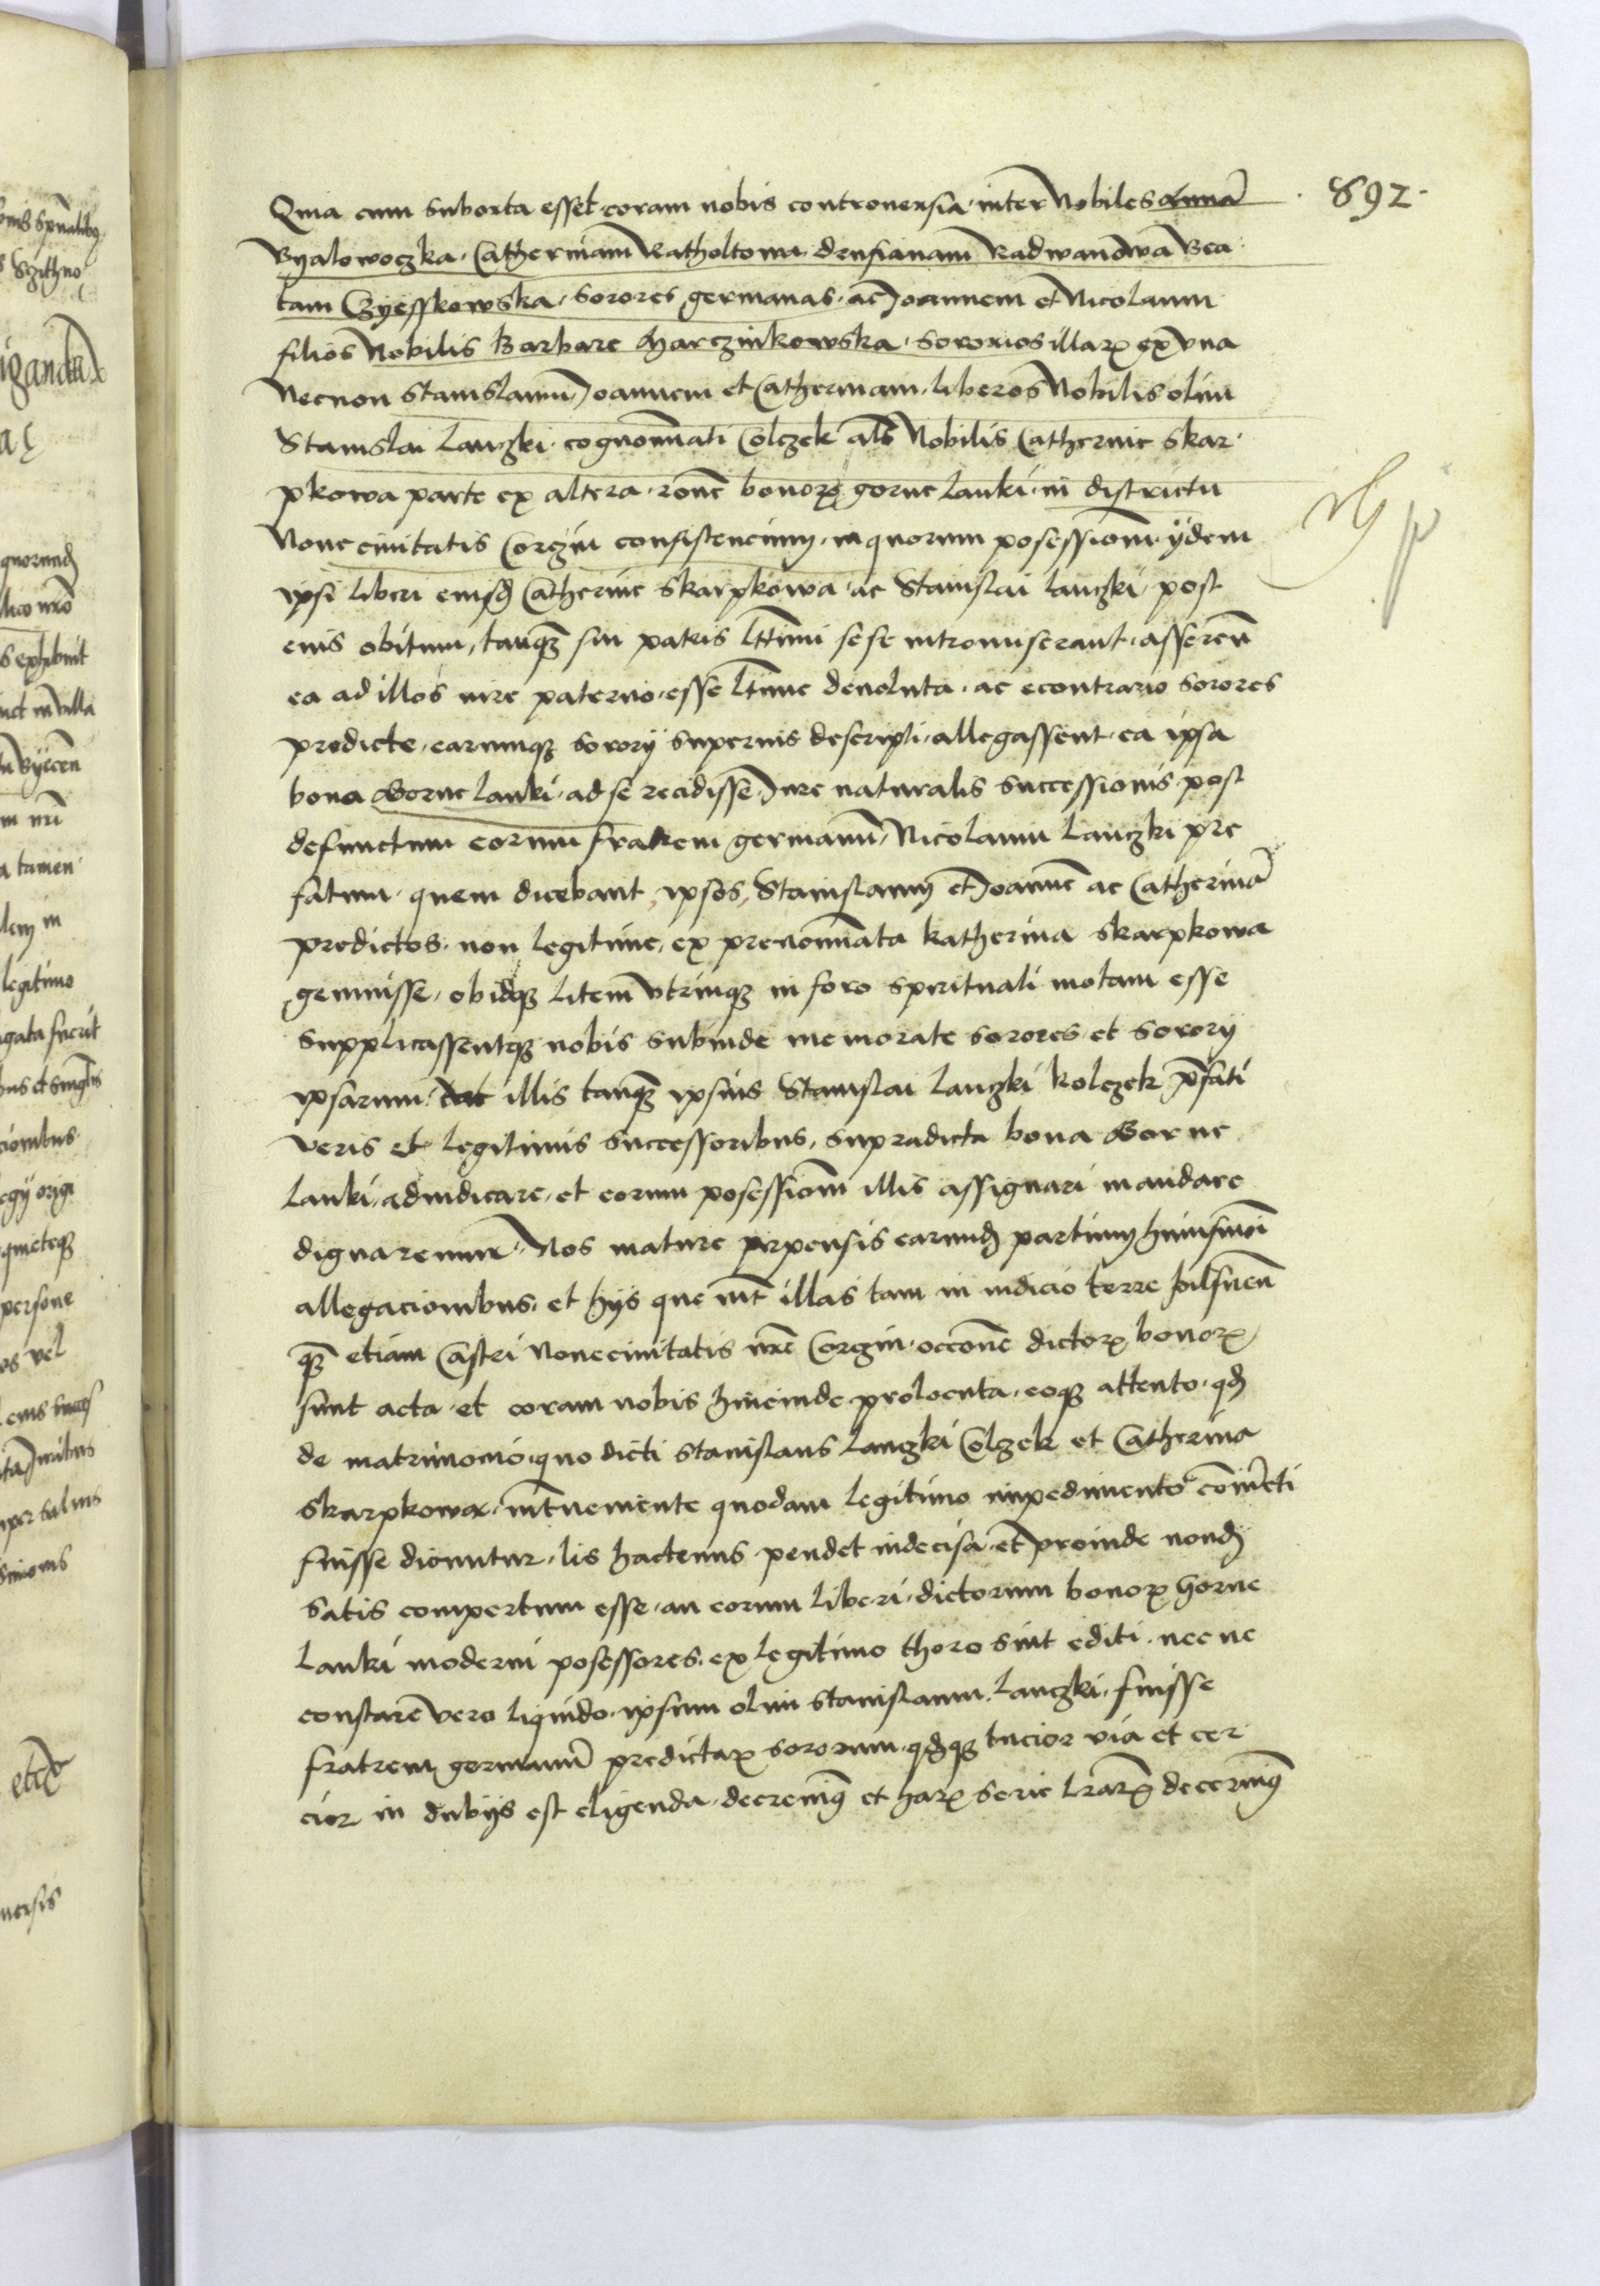 892
Quia cum suborta esset coram nobis controuersia inter Nobiles Annā
Byalowoczka Catherinam Ratholtowa Densianam Radwanowa Bea
tam Czyesskowska sorores germanas ac Joannem et Nicolaum
filios Nobilis Barbare Marczinkowska sororios illarꝝ ex vna
Necnon Stanislaum Joannem et Catherinam liberos Nobilis olim
Stanislai Lanczki cognōinati Colczek als Nobilis Catherine Skar
pkowa parte ex altera rōne bonorꝝ gorne Lanki in districtu
Noue ciuitatis Corczin consistencium in quorum posessionē ÿdem
ipsi liberi eiusdꝫ Catherine Skarpkowa ac Stanislai Lanczki post
eius obitum tanqꝫ sui patris lttimi sese intromiserant asserenʼ
ea ad illos iure paterno esse lttime deuoluta ac econtrario sorores
predicte earumqꝫ sororÿ superius descripti allegassent ea ipsa
bona Gorne Lanki ad se recidisse Jure naturalis successionis post
defunctum eorum fratrem germanū Nicolaum Lanczki pre
fatum quem dicebant ipsos Stanislaum et Joannē ac Catherinā
predictos non legitime ex prenoīnata Katherina Skarpkowa
genuisse obidqꝫ litem vtrinqꝫ in foro spirituali motam esse
Supplicassentqꝫ nobis subinde memorate sorores et sororÿ
ipsarum vt illis tanqꝫ ipsius Stanislai Lanczki Kolczek p̄fati
veris et legitimis successoribus supradicta bona Gorne
Lanki adiudicare et eorum posessionē illis assignari mandare
dignaremur Nos mature perpensis earundꝫ partium huiusmōi
allegacionibus et hÿs que int̄ illas tam in iudicio terre pilsnenʼ
qꝫ etiam Castri Noueciuitatis nr̄e Corczin occōne dictorꝝ bonorꝝ
sunt acta et coram nobis hincinde prolocuta eoqꝫ attento qdꝫ
de matrimonio quo dicti Stanislaus Lanczki Colczek et Catherina
Skarpkowa int̄ueniente quodam legitimo impedimento coniūcti
fuisse dicuntur lis hactenus pendet indecisa et proinde nondꝫ
satis compertum esse an eorum liberi dictorum bonorꝝ Gorne
Lanki moderni posessores ex legitimo thoro sint editi nec ne
constarē vero liquido ipsum olim Stanislaum Lanczki fuisse
fratrem germanū predictarꝝ sororum qdꝫqꝫ tucior via et cer
cior in dubÿs est eligenda decreuimꝰ et harꝝ serie lrarꝝ decernimꝰ